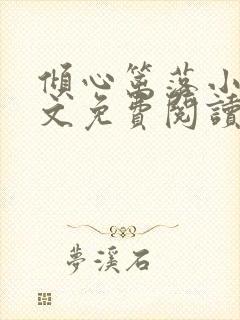 傾心篱落小
文免費閱讀
夢溪石